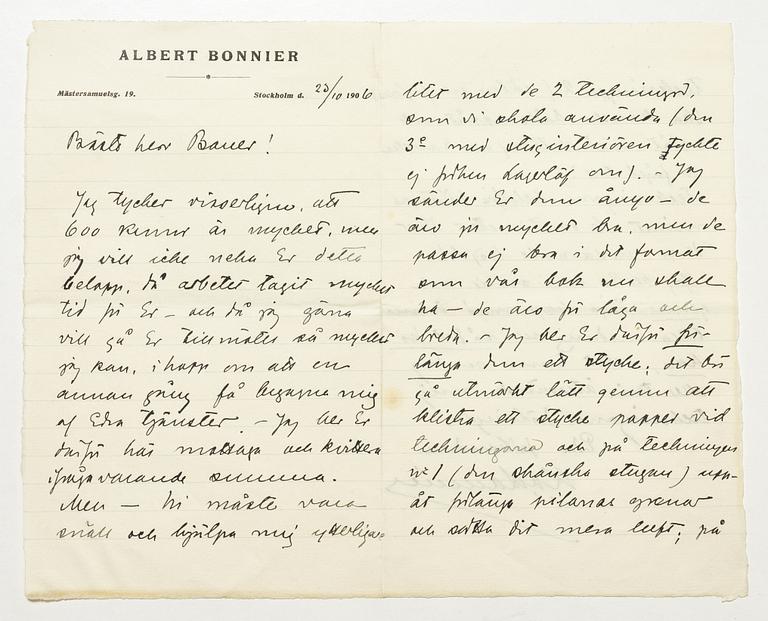 ALBERT BONNIER
Mästersamuelsg. 19.
Stockholm d. 23/10 1906
Bäste herr Bauer!
Jag tycker visserligen, att
600 kronor är mycket, men
jag vill icke neka Er detta
belopp, då arbetet tagit mycket
tid för Er – och då jag gärna
vill gå Er till mötes så mycket
jag kan, i hopp om att en
annan gång få begagna mig
af Edra tjänster. – Jag ber Er
därför här mottaga och kvittera
ifrågavarande summa.
Men – Ni måste vara
snäll och hjälpa mig ytterliga-
litet med de 2 teckningar,
som vi skola använda (den
3e med stuginteriören tyckte
ej fröken Lagerlöf om). – Jag
sänder Er dem ånyo – de
äro ju mycket bra, men de
passa ej bra i det format
som vår bok nu skall
ha – de äro för låga och
breda. – Jag ber Er därför för-
länga dem ett stycke; det bör
gå utmärkt lätt genom att
klistra ett stycke papper vid
teckningarna och på teckningen
nr 1 (den skånska stugan) upp-
åt förlänga pilarnas grenar
och sätta dit mera luft; på